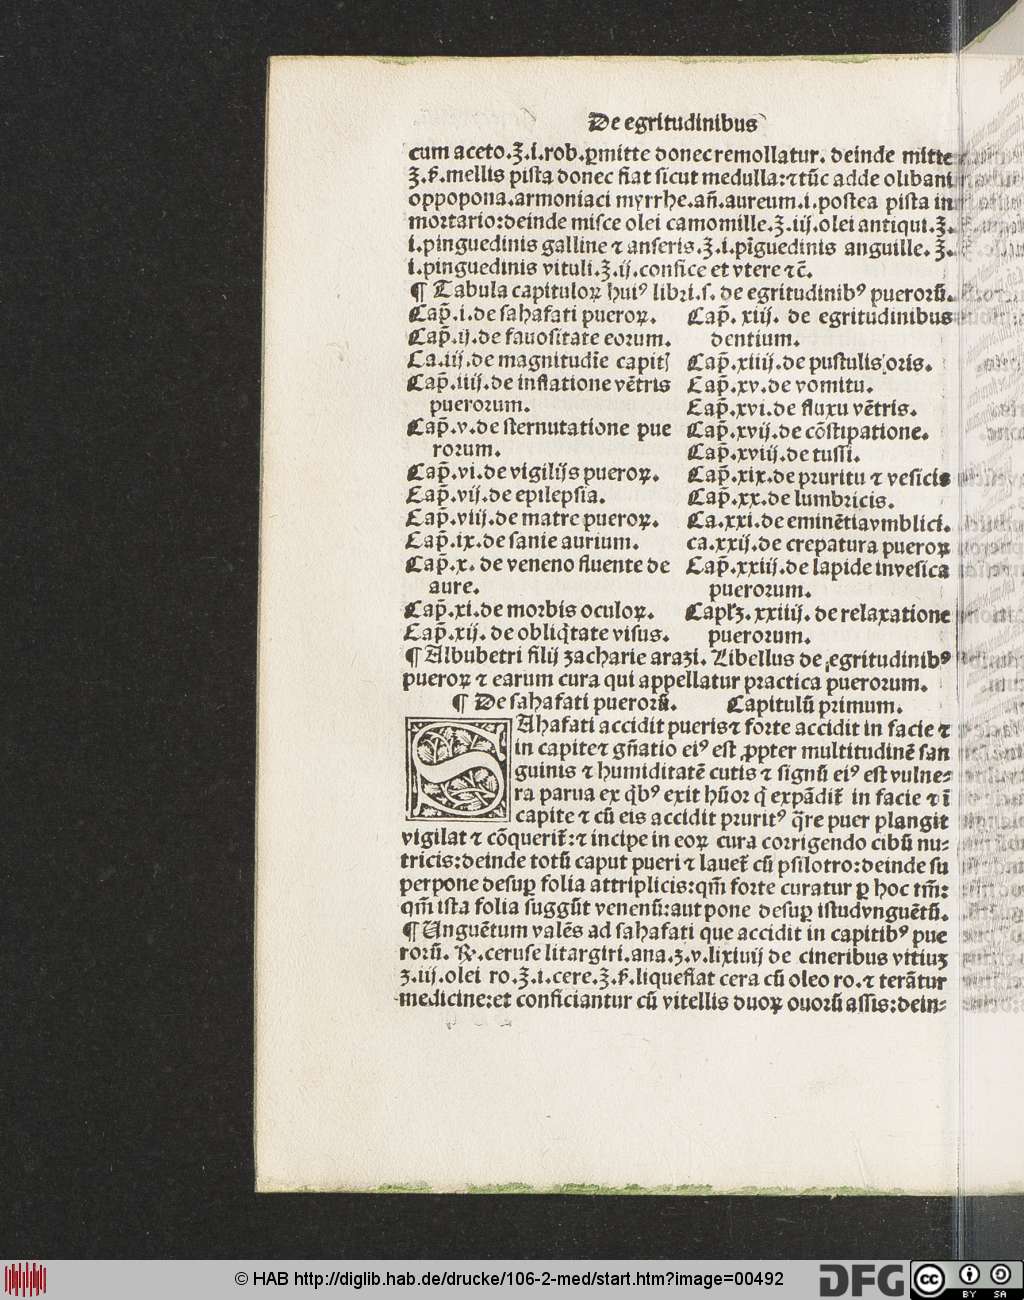 De egritudinibus
cum aceto.ʒ.i.rob.ꝑmitte donec remollatur. deinde mitte
ʒ.ẜ.mellis pista donec fiat sicut medulla:⁊ tūc adde olibani
oppopona.armoniaci myrrhe.añ.aureum.i.postea pista in
mortario:deinde misce olei camomille.ʒ.iij.olei antiqui.ʒ.
i.pinguedinis galline ⁊ anseris.ʒ.i.pīguedinis anguille.ʒ.
i.pinguedinis vituli.ʒ.ij.confice et vtere ⁊c̄.
¶ Tabula capituloꝝ huiꝰ libri.s. de egritudinibꝰ puerorū.
Cap̄.i.de sahafati pueroꝝ.
Cap̄.ij.de fauositate eorum.
Ca.iij.de magnitudīe capitꝭ
Cap̄.iiij.de inflatione vētris
puerorum.
Cap̄.v.de sternutatione pue
rorum.
Cap̄.vi.de vigilijs pueroꝝ.
Cap̄.vij.de epilepsia.
Cap̄.viij.de matre pueroꝝ.
Cap̄.ix.de sanie aurium.
Cap̄.x. de veneno fluente de
aure.
Cap̄.xi.de morbis oculoꝝ.
Cap̄.xij. de obliq̄tate visus.
Cap̄. xiij. de egritudinibus
dentium.
Cap̄.xiiij.de pustulis oris.
Cap̄.xv.de vomitu.
Cap̄.xvi.de fluxu vētris.
Cap̄.xvij.de cōstipatione.
Cap̄.xviij.de tussi.
Cap̄.xix.de pruritu ⁊ vesicis
Cap̄.xx.de lumbricis.
Ca.xxi.de eminētia vmblici.
ca.xxij.de crepatura pueroꝝ
Cap̄.xxiij.de lapide in vesica
puerorum.
Caplʒ. xxiiij. de relaxatione
puerorum.
¶ Albubetri filij zacharie arazi. Libellus de egritudinibꝰ
pueroꝝ ⁊ earum cura qui appellatur practica puerorum.
¶ De sahafati puerorū. Capitulū primum.
SAhafati accidit pueris ⁊ forte accidit in facie ⁊
in capite ⁊ gñatio eiꝰ est ꝓpter multitudinē san
guinis ⁊ humiditatē cutis ⁊ signū eiꝰ est vulne⸗
ra parua ex qͥbꝰ exit hūor qͥ expādit᷑ in facie ⁊ ī
capite ⁊ cū eis accidit pruritꝰ q̄re puer plangit
vigilat ⁊ cōquerit᷑:⁊ incipe in eoꝝ cura corrigendo cibū nu⸗
tricis:deinde totū caput pueri ⁊ lauet᷑ cū psilotro:deinde su
perpone desuꝑ folia attriplicis:qm̄ forte curatur ꝑ hoc tm̄:
qm̄ ista folia suggūt venenū:aut pone desuꝑ istud vnguētū.
¶ Unguētum valēs ad sahafati que accidit in capitibꝰ pue
rorū. ℞.ceruse litargiri.ana.ʒ.v.lixiuij de cineribus vitiuʒ
ʒ.iij.olei ro.ʒ.i.cere.ʒ.ẜ.liquefiat cera cū oleo ro.⁊ terātur
medicine:et conficiantur cū vitellis duoꝝ ouorū assis:dein⸗
© HAB http://diglib.hab.de/drucke/106-2-med/start.htm?image=00492
DFG
cc
BY SA